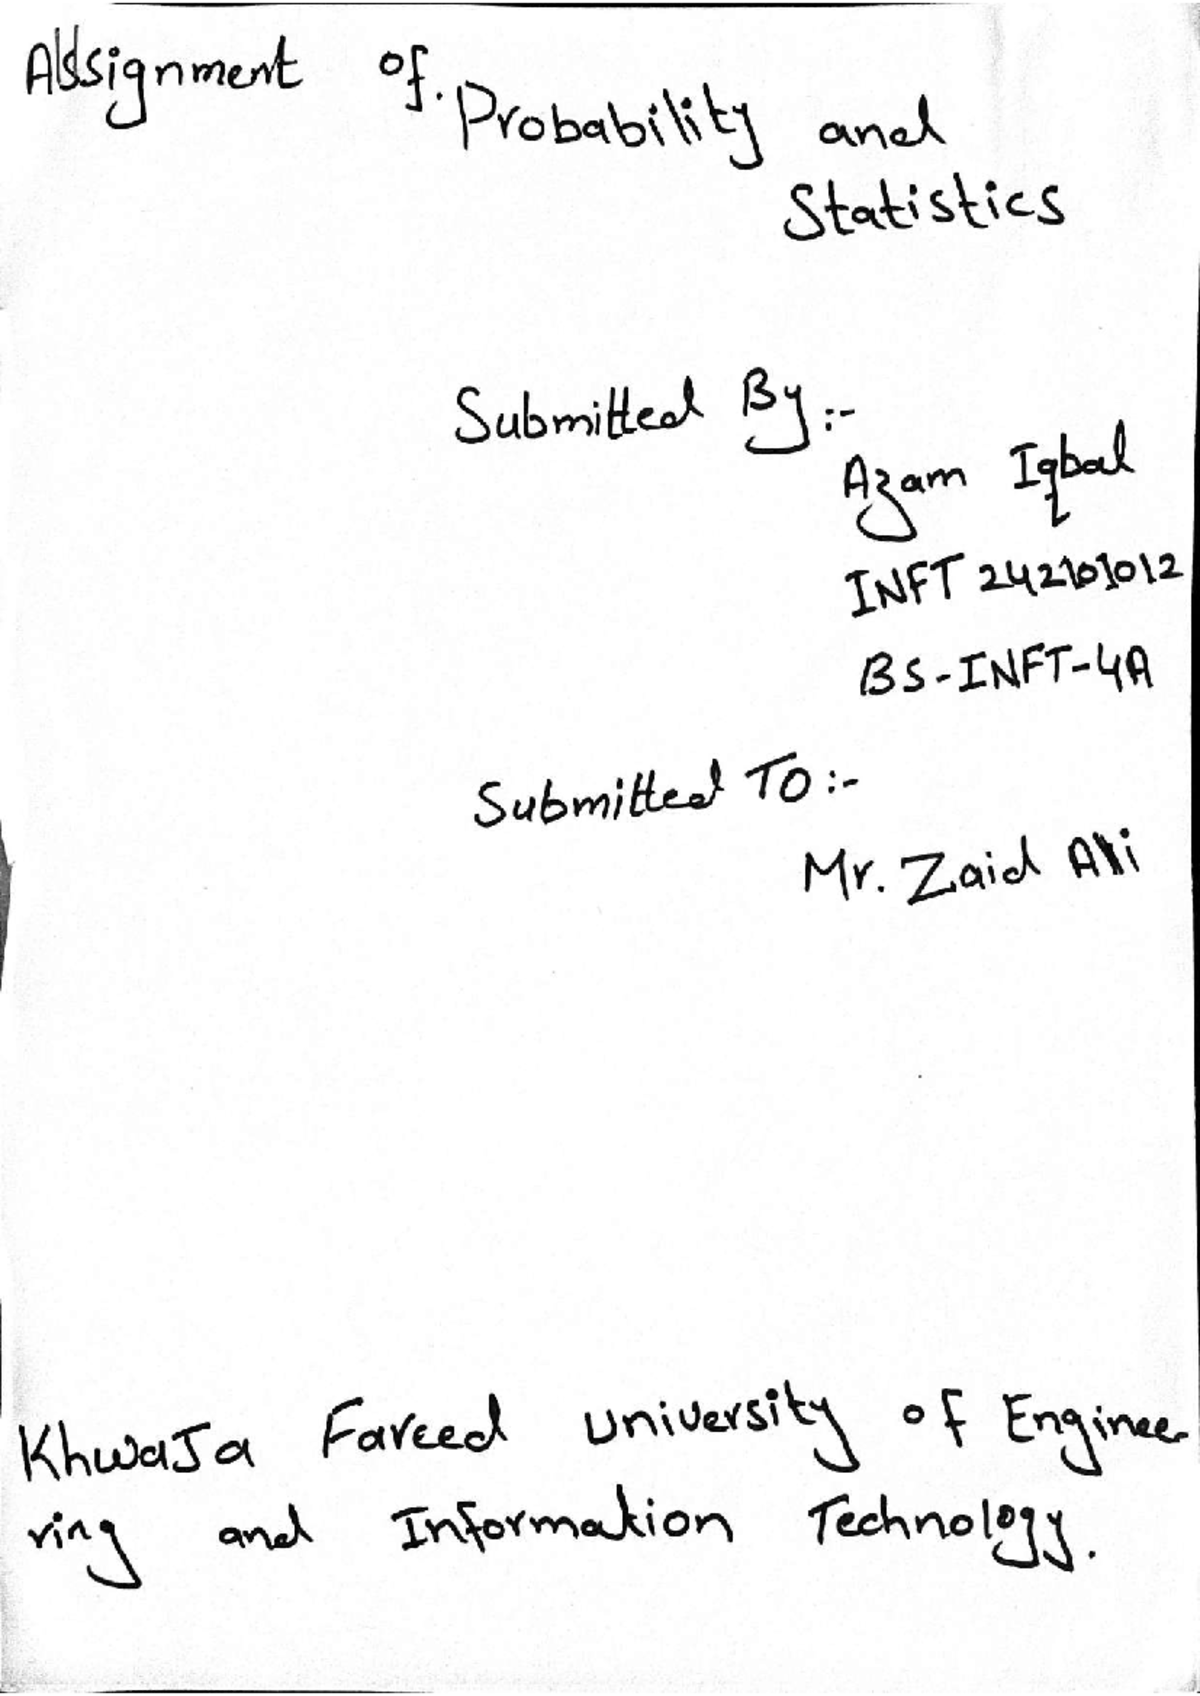 Assignment of.
Probability and
Statistics
Submitted By :-
Azam Iqbal
INFT 242101012
BS-INFT-4A
Submitted To :-
Mr. Zaid Ali
KhwaJa Fareed university of Enginee
ring and Information Technology.